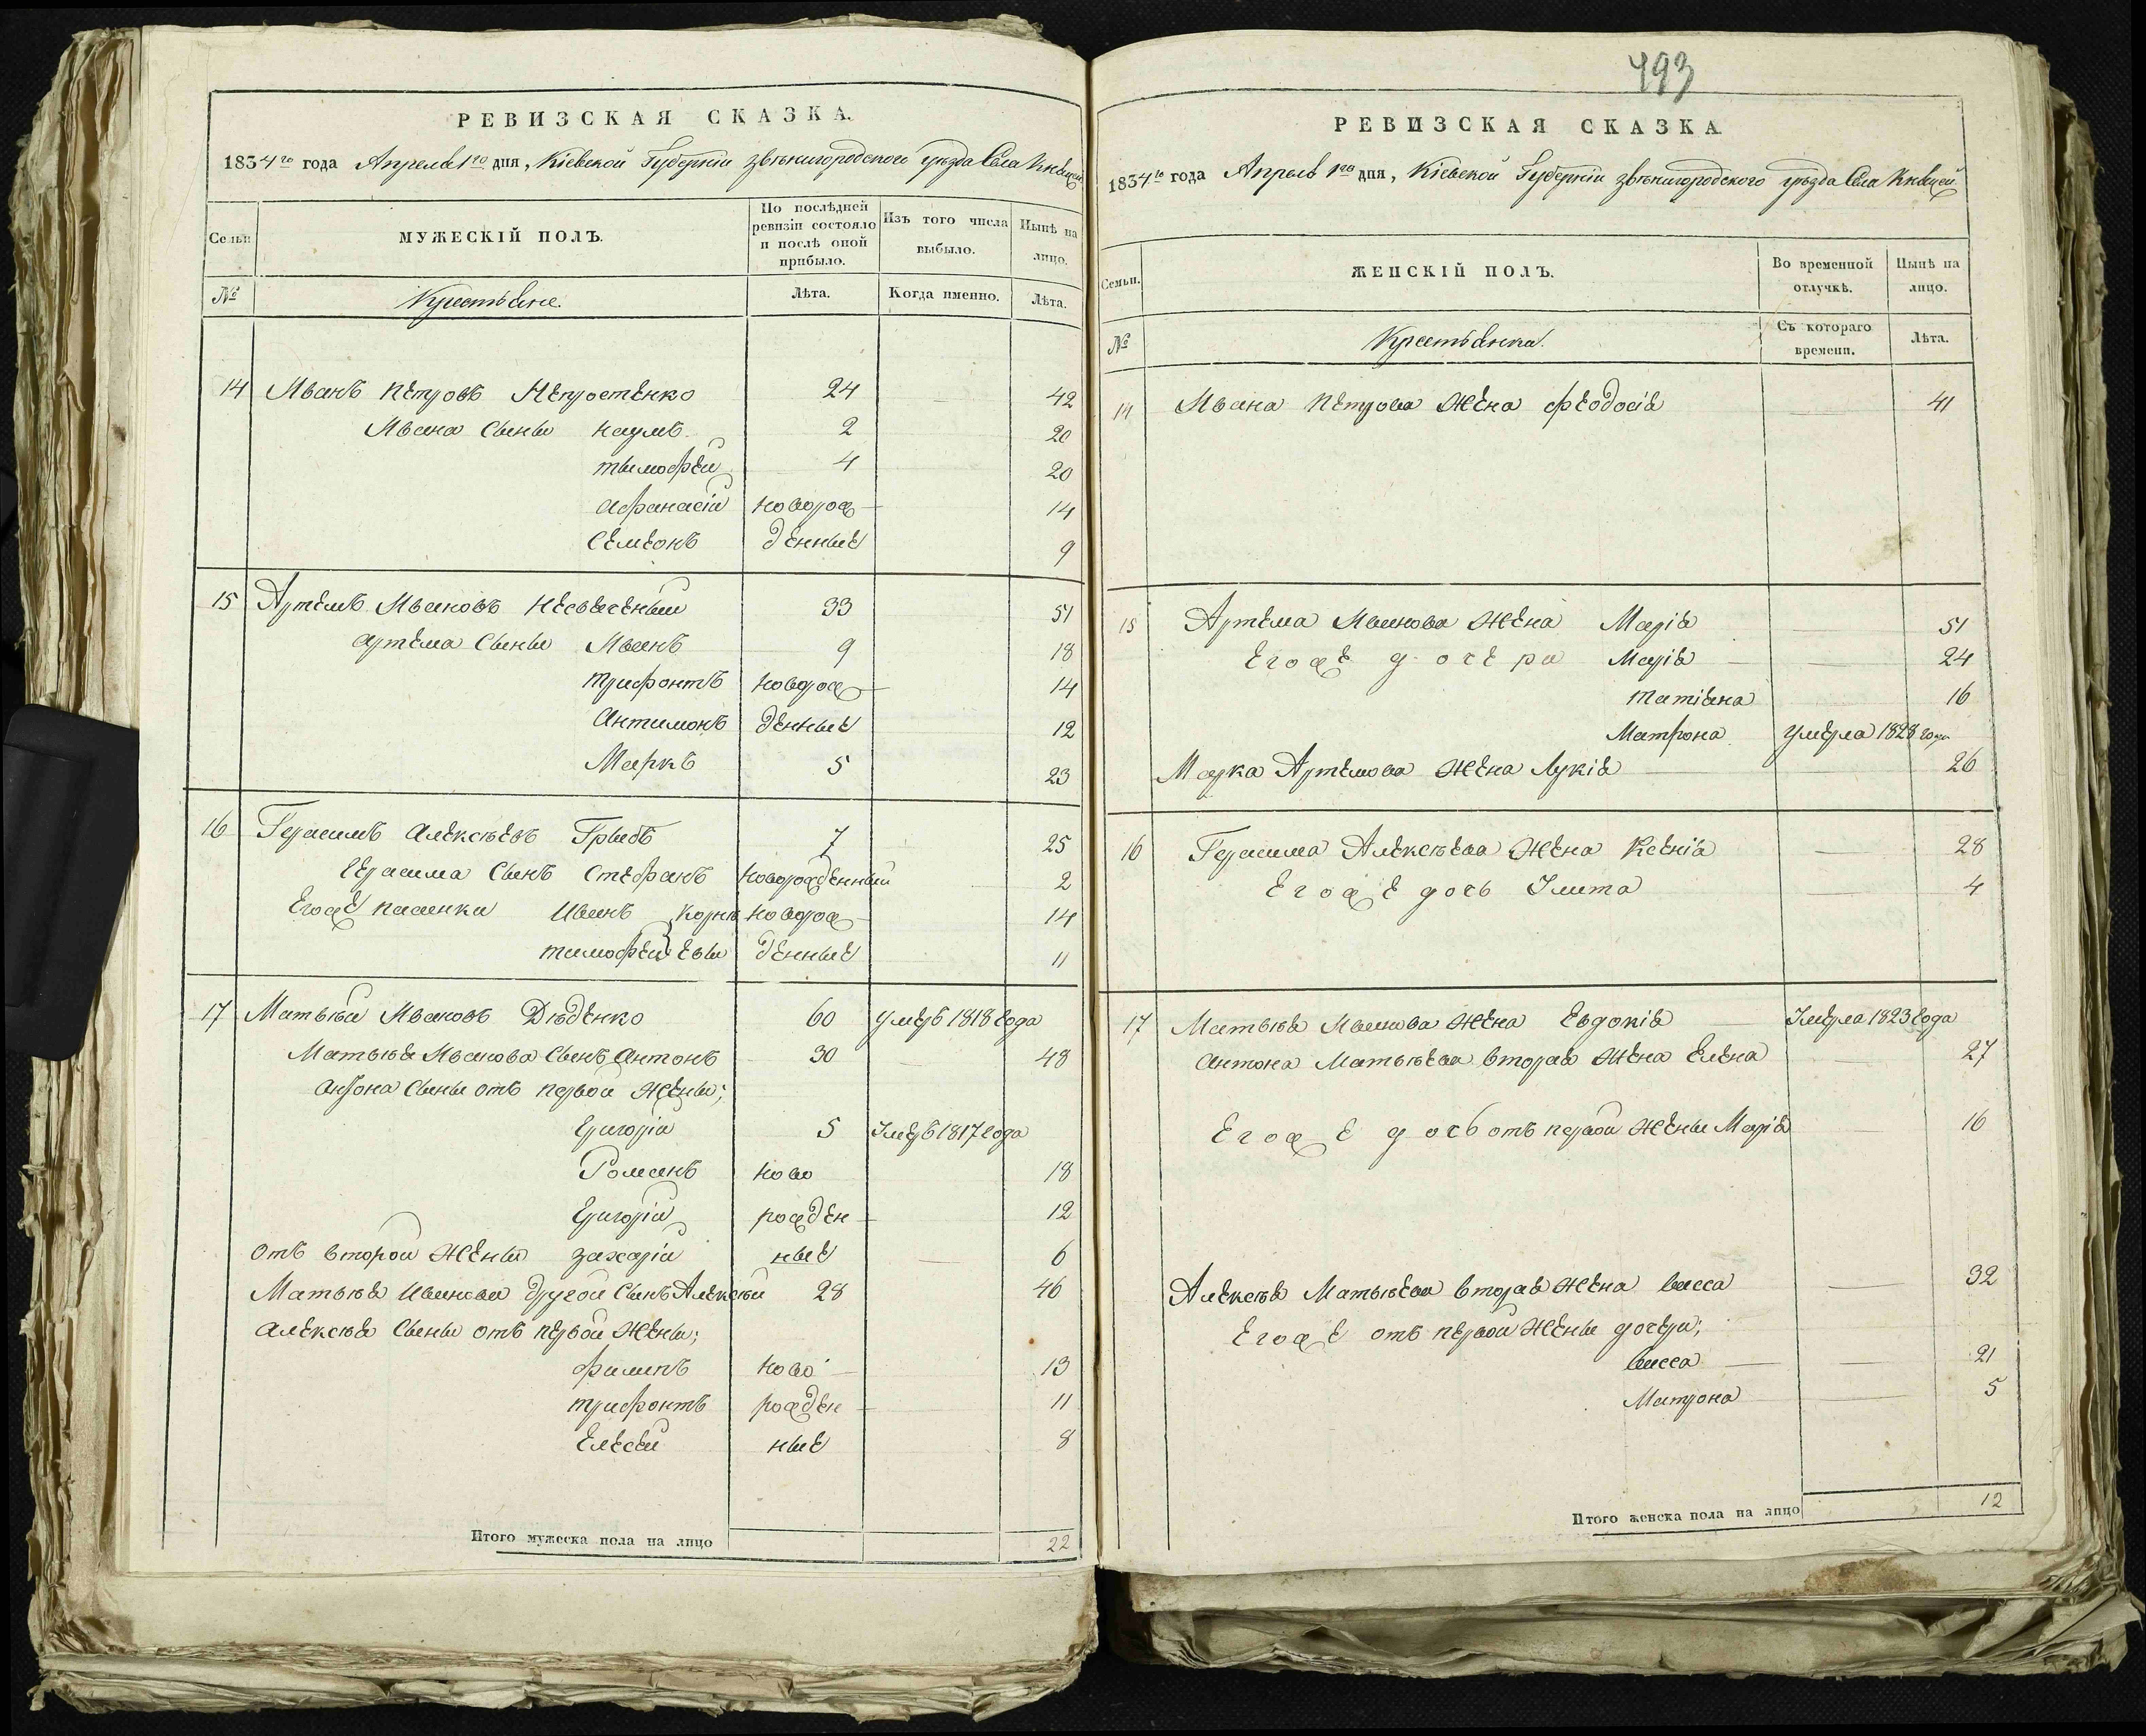 РЕВИЗСКАЯ СКАЗКА.
1834го года Апреля 1го дня, Кіевской Губерніи звѣнигородского уѣзда Села
Семьи
МУЖЕСКІЙ ПОЛЪ.
По послѣдней ревизіи состояло и послѣ оной прибыло.
Изъ того числа выбыло.
Нынѣ на лицо.
№
Крестьяне.
Лѣта.
Когда именно.
Лѣта.
14 Иванъ Петровъ 24 42
Ивана Сыны наумъ 2 20
тымофей 4 20
афанасій новорож 14
Семіонъ денные 9
15 Артемъ Ивановъ 33 51
артема Сыны Иванъ 9 18
трифонтъ новорож 14
Антимонъ денные 12
Маркъ 5 23
16 Герасимъ алексѣевъ Грыбъ 7 25
Герасима Сынъ Стефанъ новорожденный 2
Егоже пасенки Иванъ Корнѣ новорож 14
тимофей евы денные 11
17 Матвѣй Ивановъ Дѣденко 60 умеръ 1818 года
Матвѣя Иванова Сынъ Антонъ 30 48
антона Сыны отъ первой жены;
Григорій 5 Умеръ 1817 года
Романъ ново 18
Григорій рожден 12
отъ второй жены захарій ные 6
Матвѣя Иванова другой Сынъ Алексѣй 28 46
алексѣя Сыны отъ первой жены;
филипъ ново 13
трифонтъ рожден 11
Елесей ные 8
Итого мужеска пола на лицо 22
493
РЕВИЗСКАЯ СКАЗКА.
1834го года Апреля 1го дня, Кіевской Губерніи звѣнигородского уѣзда Села
Семьи.
ЖЕНСКІЙ ПОЛЪ.
Во временной отлучкѣ.
Нынѣ на лицо.
№
Крестьянка.
Съ котораго времени.
Лѣта.
14 Ивана Петрова жена феодосія 41
15 Артема Иванова жена Марія 51
Егоже дочери Марія 24
татіяна 16
Матрона умерла 1828 года
Марка Артемова жена Лукія 26
16 Герасима Алексѣева жена Ксенія 28
Егоже дочь Улита 4
17 Матвѣя Иванова жена Евдокія Умерла 1823 года
антона Матвѣева вторая жена Елена 27
Егоже дочь отъ первой жены Марія 16
Алексѣя Матвѣева вторая жена васса 32
Егоже отъ первой жены дочери;
васса 21
Матрона 5
Итого женска пола на лицо 12